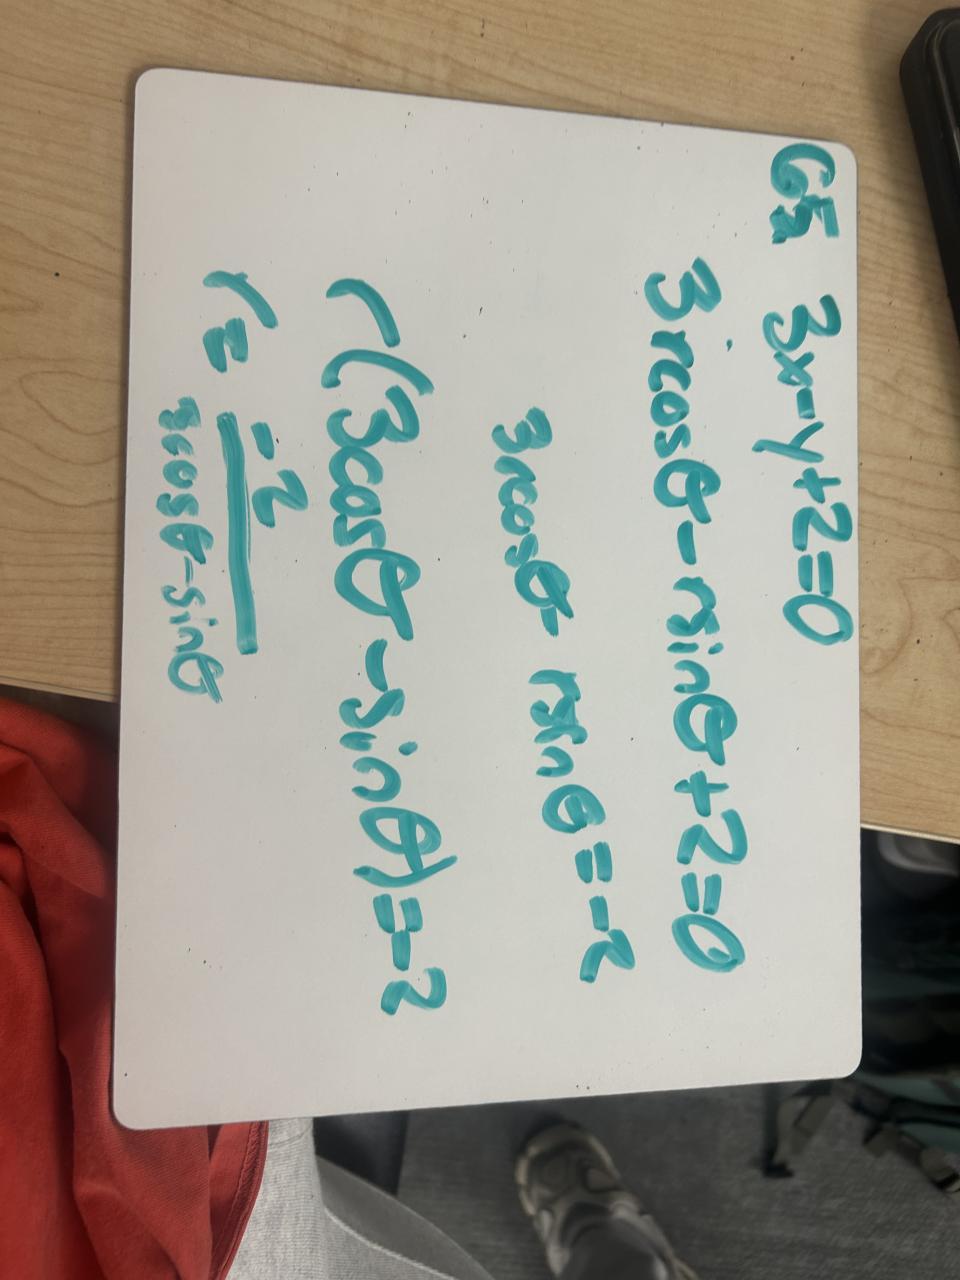 65 3x-y+2=0
3rcosθ-rsinθ+2=0
3rcosθ- rsinθ=-2
r(3cosθ-sinθ)=-2
r= -2
3cosθ-sinθ